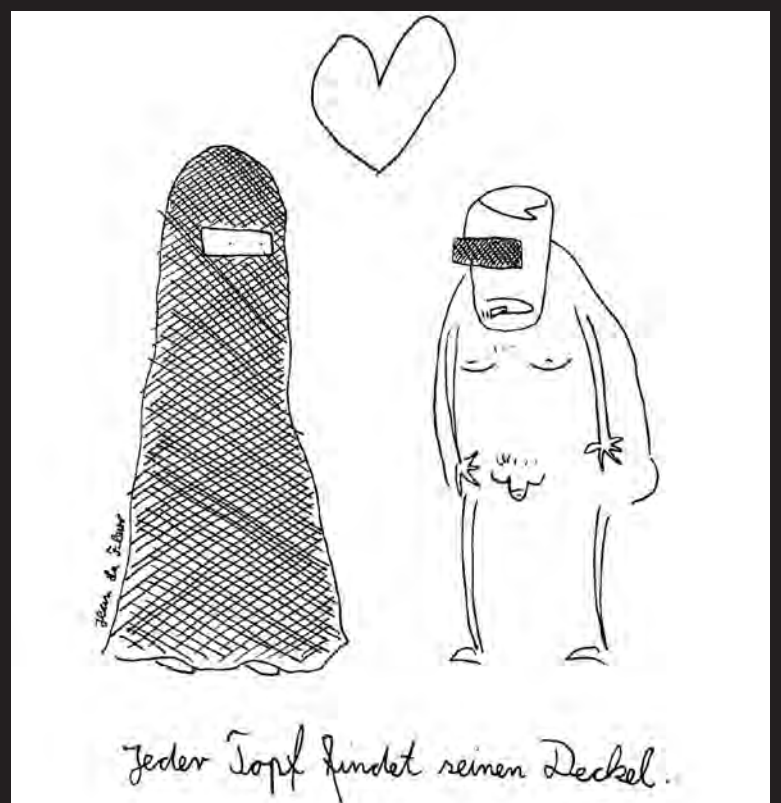 Jean La Fleur
Jeder Topf findet seinen Deckel.